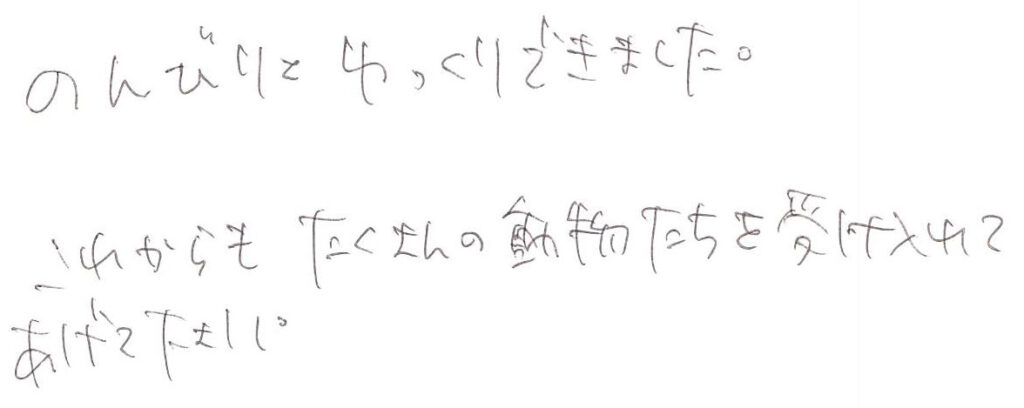 のんびりとゆっくりできました。
これからもたくさんの動物たちを受け入れて
あげて下さい。